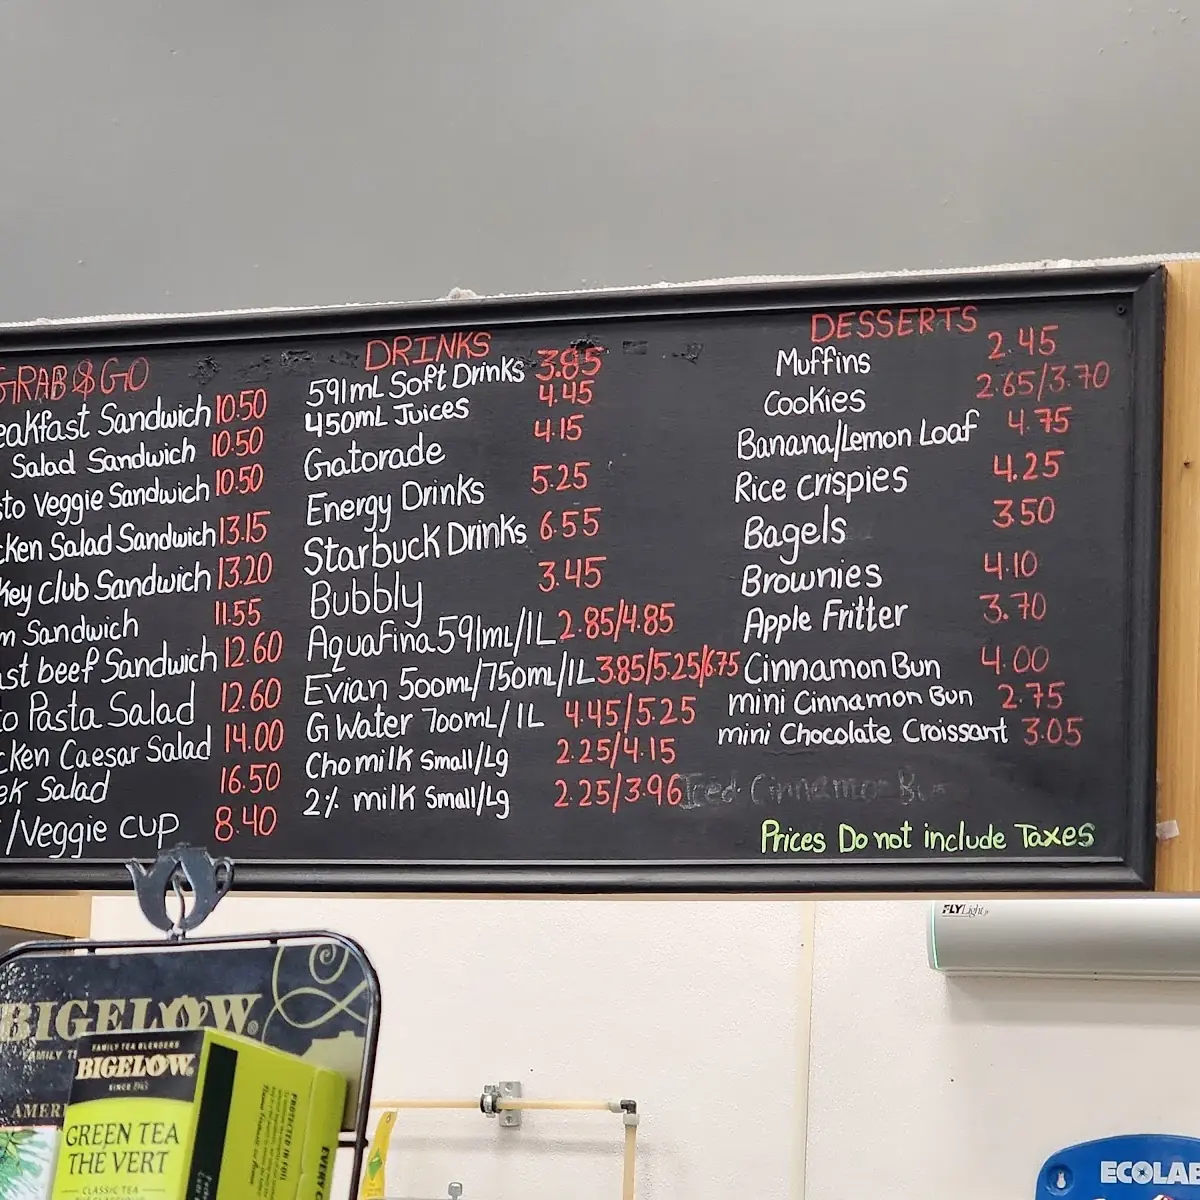 GRAB & GO
eakfast Sandwich 10.50
Salad Sandwich 10.50
sto Veggie Sandwich 10.50
cken Salad Sandwich 13.15
key club Sandwich 13.20
m Sandwich 11.55
ast beef Sandwich 12.60
to Pasta Salad 12.60
cken Caesar Salad 14.00
ek Salad 16.50
/Veggie cup 8.40
DRINKS
591mL Soft Drinks 3.85
450mL Juices 4.45
Gatorade 4.15
Energy Drinks 5.25
Starbuck Drinks 6.55
Bubbly 3.45
Aquafina 591mL/1L 2.85/4.85
Evian 500mL/750mL/1L 3.85/5.25/6.75
G Water 700mL/1L 4.45/5.25
Cho milk Small/Lg 2.25/4.15
2% milk Small/Lg 2.25/3.96
DESSERTS
Muffins 2.45
Cookies 2.65/3.70
Banana/Lemon Loaf 4.75
Rice crispies 4.25
Bagels 3.50
Brownies 4.10
Apple Fritter 3.70
Cinnamon Bun 4.00
mini Cinnamon Bun 2.75
mini Chocolate Croissant 3.05
Iced Cinnamon Bun
Prices Do not include Taxes
FLYLight
BIGELOW
FAMILY TEA BLENDERS
BIGELOW
GREEN TEA
THÉ VERT
CLASSIC TEA
PROTECTED IN FOIL
ECOLAB